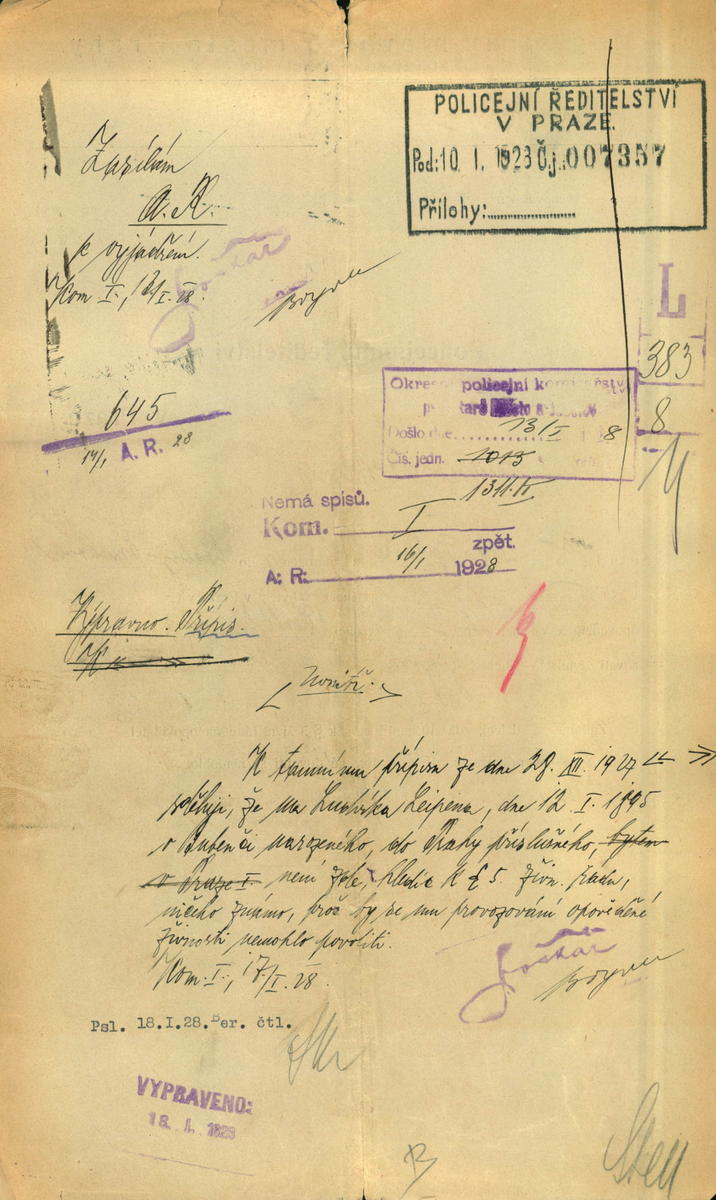 POLICEJNÍ ŘEDITELSTVÍ
V PRAZE.
Pod: 10 I. 1928 Čj.: 007357
Přílohy:
Zasílám
A. R.
k vyjádření.
Kom I., 12/I. 28.
L
383
8
645
14/1 A. R. 28
Okresní policejní komisařství
pro Staré Město a Josefov
Došlo dne 13/I 1928
Čís. jedn. 1013
1311
Nemá spisů.
Kom. I
zpět.
A: R: 16/1 1928
Výpravno. Přípis.
K tamnímu přípisu ze dne 28. XII. 1927
sděluji, že na Ludvíka Leipena, dne 12. I. 1895
v Bubenči narozeného, do Prahy příslušného, bytem
v Praze I. není zde, hledíc k § 5. živn. řádu,
ničeho známo, proč by se mu provozování opověděné
živnosti nemohlo povoliti.
Kom. I., 17/I. 28.
Psl. 18.I.28. Ber. čtl.
VYPRAVENO:
18. I. 1928